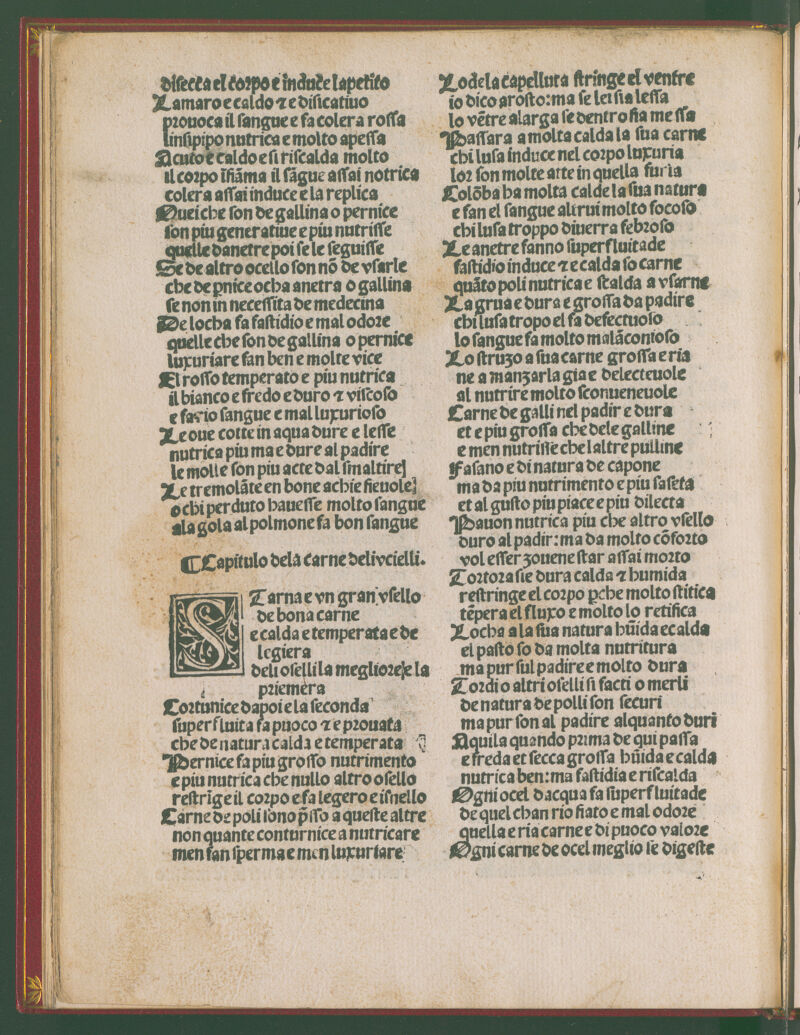 diſecca el corpo e induce lapetito
Lamaro e caldo ⁊ e diſicatiuo
prouoca il ſangue e fa colera roſſa
linſipipo nutrica e molto apeſſa
Acuto e caldo e ſi riſcalda molto
il corpo īfiāma il ſāgue aſſai notrica
colera aſſai induce e la replica
Quei che ſon de gallina o pernice
ſon piu generatiue e piu nutriſſe
quelle danetre poi ſe le ſeguiſſe
Se de altro ocello ſon nō de vſarle
che de pnice ocha anetra o gallina
ſe non in neceſſita de medecina
De locha fa faſtidio e mal odore
quelle che ſon de gallina o pernice
luxuriare fan ben e molte vice
El roſſo temperato e piu nutrica
il bianco e fredo e duro ⁊ viſcoſo
e fa rio ſangue e mal luxurioſo
Le oue cotte in aqua dure e leſſe
nutrica piu ma e dure al padire
le molle ſon piu acte dal ſmaltire]
Le tremolāte en bone a chi e fieuole]
o chi perduto haueſſe molto ſangue
ala gola al polmone fa bon ſangue
¶ Capitulo dela carne deli vcielli.
STarna e vn gran vſello
de bona carne
e calda e temperata e de
legiera
deli oſelli la megliore e la
priemera
Cortunice dapoi e la ſeconda
ſuperfluita fa puoco ⁊ e prouata
che de natura calda e temperata
Pernice fa piu groſſo nutrimento
e piu nutrica che nullo altro oſello
reſtrige il corpo e fa legero e iſnello
Carne de poli ſono pſſo a queſte altre
non quante conturnice a nutricare
men fan ſperma e men luxuriare
Lo de la capellura ſtringe el ventre
io dico aroſto: ma ſe lei ſia leſſa
lo vētre alarga ſe dentro ſia meſſa
Paſſara a molta calda la ſua carne
chi luſa induce nel corpo luxuria
lor ſon molte arte in quella furia
Colōba ha molta calde la ſua natura
e fan el ſangue altrui molto focoſo
chi luſa troppo diuerra febroſo
Le anetre fanno ſuperfluitade
faſtidio induce ⁊ e calda ſo carne
quāto poli nutrica e ſcalda a vſarne
La grua e dura e groſſa da padire
chi luſa tropo el fa defectuoſo
lo ſangue fa molto malāconioſo
Lo ſtruzo a ſua carne groſſa e ria
ne a manzarla gia e delecteuole
al nutrire molto ſconueneuole
Carne de galli nel padir e dura
et e piu groſſa che dele galline
e men nutriſſe che laltre pulline
Faſano e di natura de capone
ma da piu nutrimento e piu ſaſeta
et al guſto piu piace e piu dilecta
Pauon nutrica piu che altro vſello
duro al padir: ma da molto cōforto
vol eſſer zouene ſtar aſſai morto
Tortora ſie dura calda ⁊ humida
reſtringe el corpo pche molto ſtitica
tēpera el fluxo e molto lo retifica
Locha a la ſua natura hūida e calda
el paſto ſo da molta nutritura
ma pur ſul padire e molto dura
Tordi o altri oſelli ſi facti o merli
de natura de polli ſon ſecuri
ma pur ſon al padire alquanto duri
Aquila quando prima de qui paſſa
e freda et ſecca groſſa hūida e calda
nutrica ben: ma faſtidia e riſcalda
Ogni ocel dacqua fa ſuperfluitade
de quel chan rio fiato e mal odore
quella e ria carne e di puoco valore
Ogni carne de ocel meglio ſe digeſte